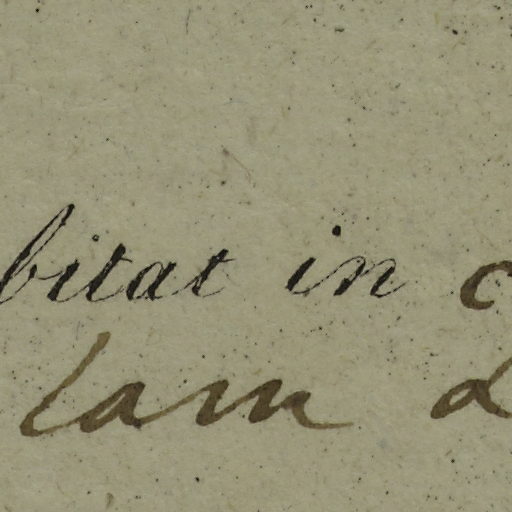 bitat in c
lam d